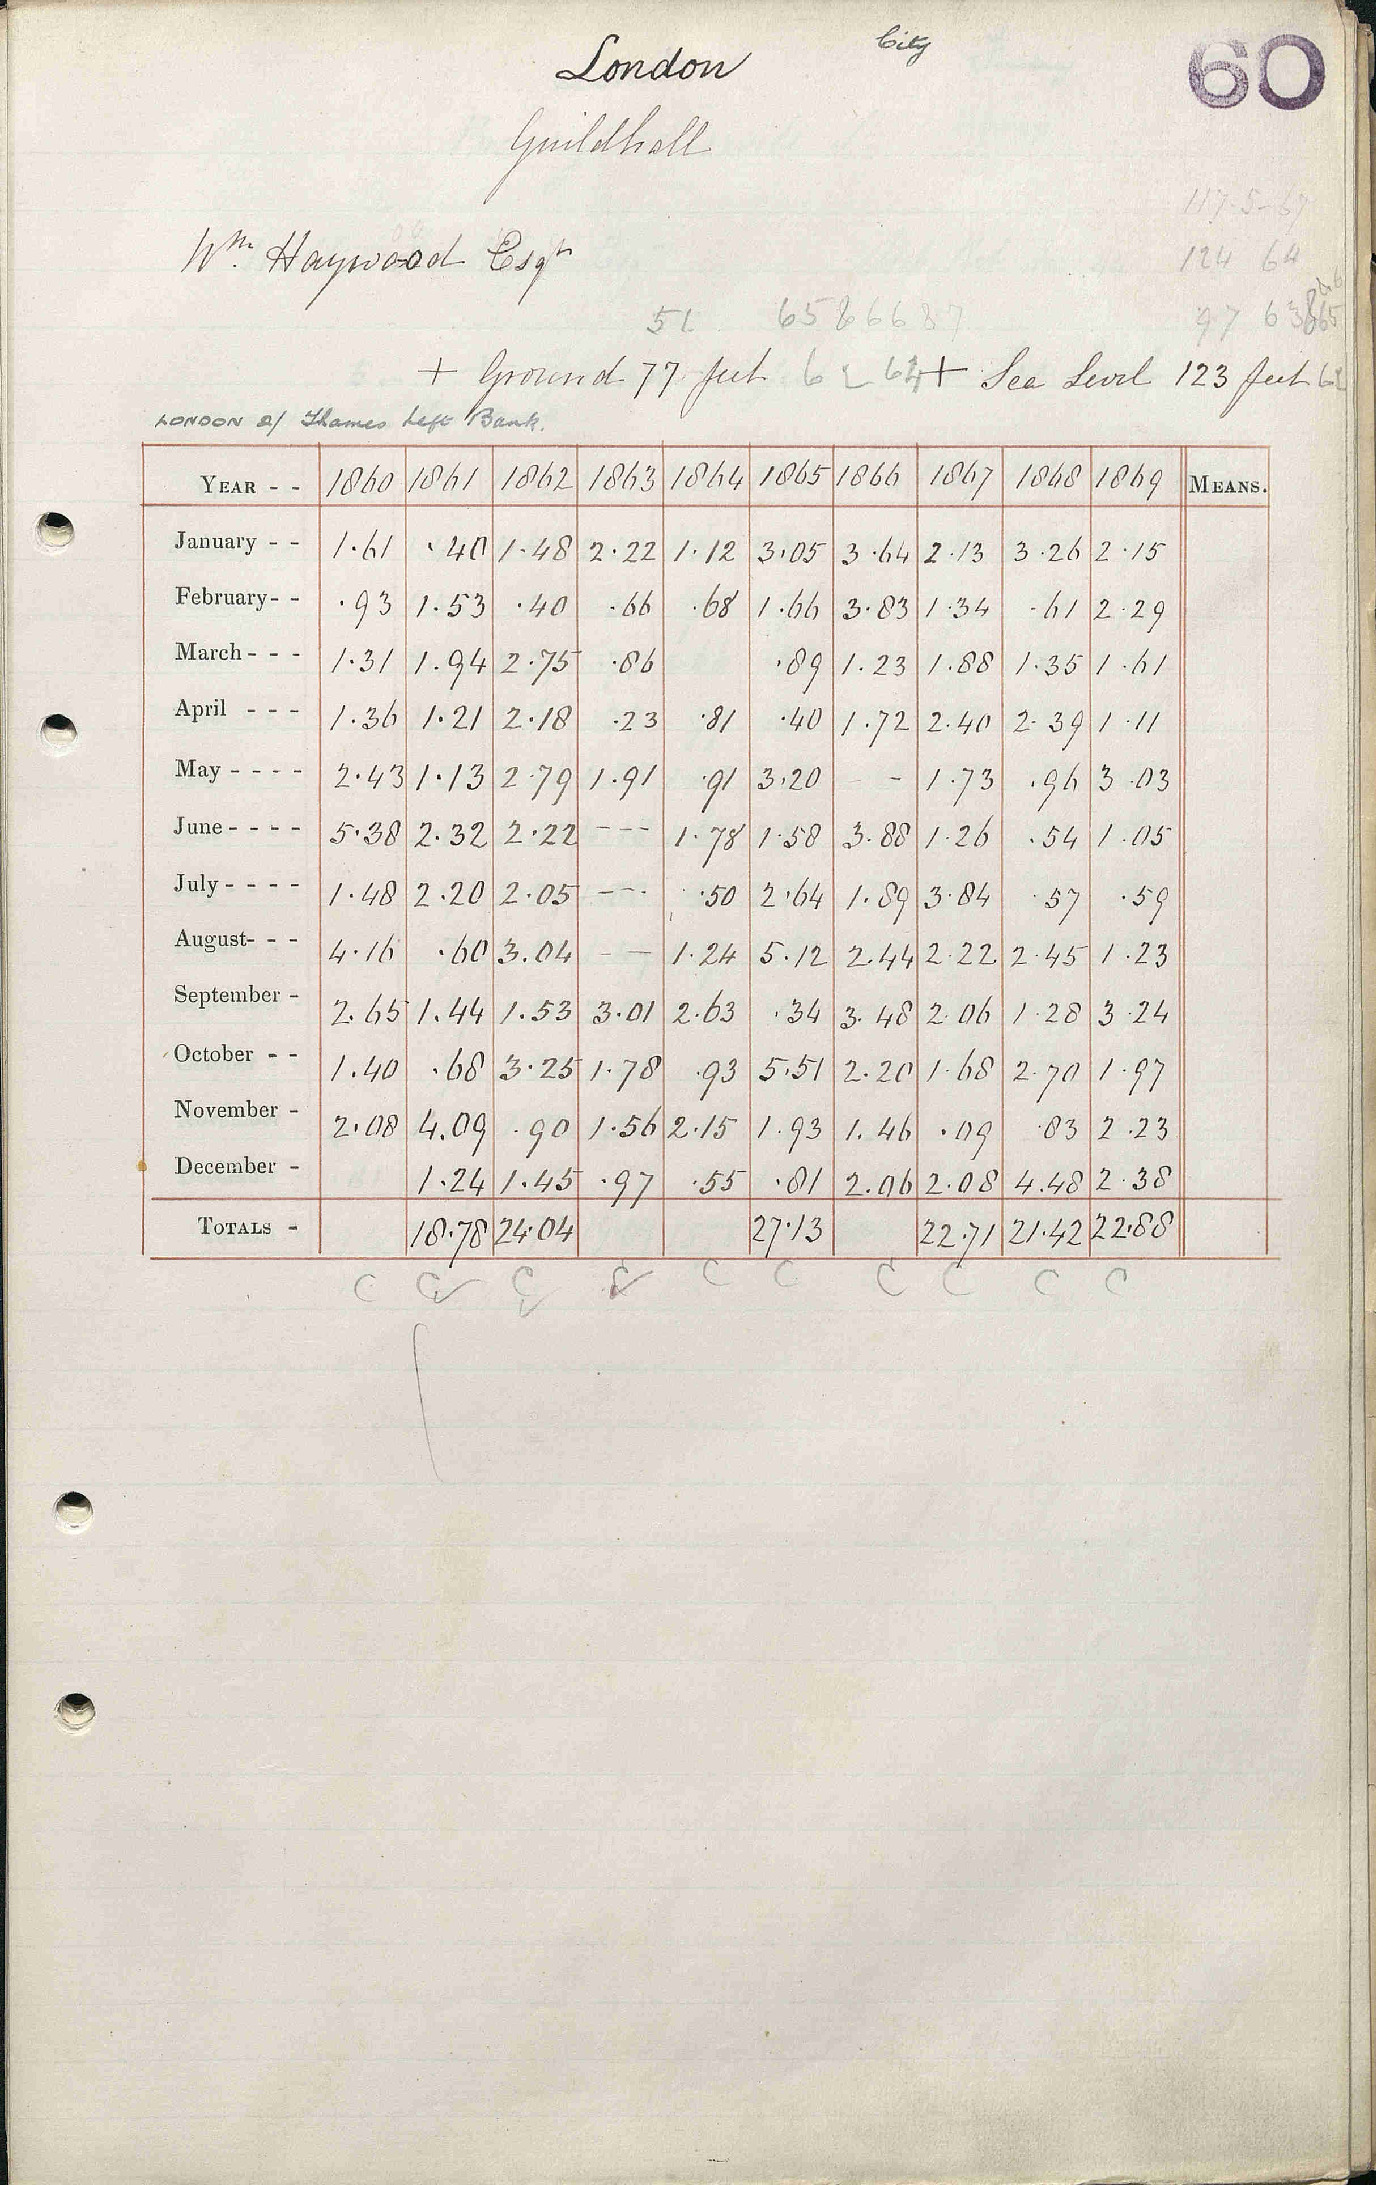 London
City
60
Guildhall
117.5-67
Wm. Haywood Esqr
124 64
51
97
+ Ground 77 feet
+ Sea Level 123 feet
LONDON 2/ Thames Left Bank.
YEAR - - 1860 1861 1862 1863 1864 1865 1866 1867 1868 1869 MEANS.
January - - 1.61 .40 1.48 2.22 1.12 3.05 3.64 2.13 3.26 2.15
February - - .93 1.53 .40 .66 .68 1.66 3.83 1.34 .61 2.29
March - - - 1.31 1.94 2.75 .86 .89 1.23 1.88 1.35 1.61
April - - - 1.36 1.21 2.18 .23 .81 .40 1.72 2.40 2.39 1.11
May - - - - 2.43 1.13 2.79 1.91 .91 3.20 - - 1.73 .96 3.03
June - - - - 5.38 2.32 2.22 --- 1.78 1.58 3.88 1.26 .54 1.05
July - - - - 1.48 2.20 2.05 --- .50 2.64 1.89 3.84 .57 .59
August- - - 4.16 .60 3.04 - - 1.24 5.12 2.44 2.22 2.45 1.23
September - 2.65 1.44 1.53 3.01 2.63 .34 3.48 2.06 1.28 3.24
October - - 1.40 .68 3.25 1.78 .93 5.51 2.20 1.68 2.70 1.97
November - 2.08 4.09 .90 1.56 2.15 1.93 1.46 .09 .83 2.23
December - 1.24 1.45 .97 .55 .81 2.06 2.08 4.48 2.38
TOTALS - 18.78 24.04 27.13 22.71 21.42 22.88
C C C C C C C C C